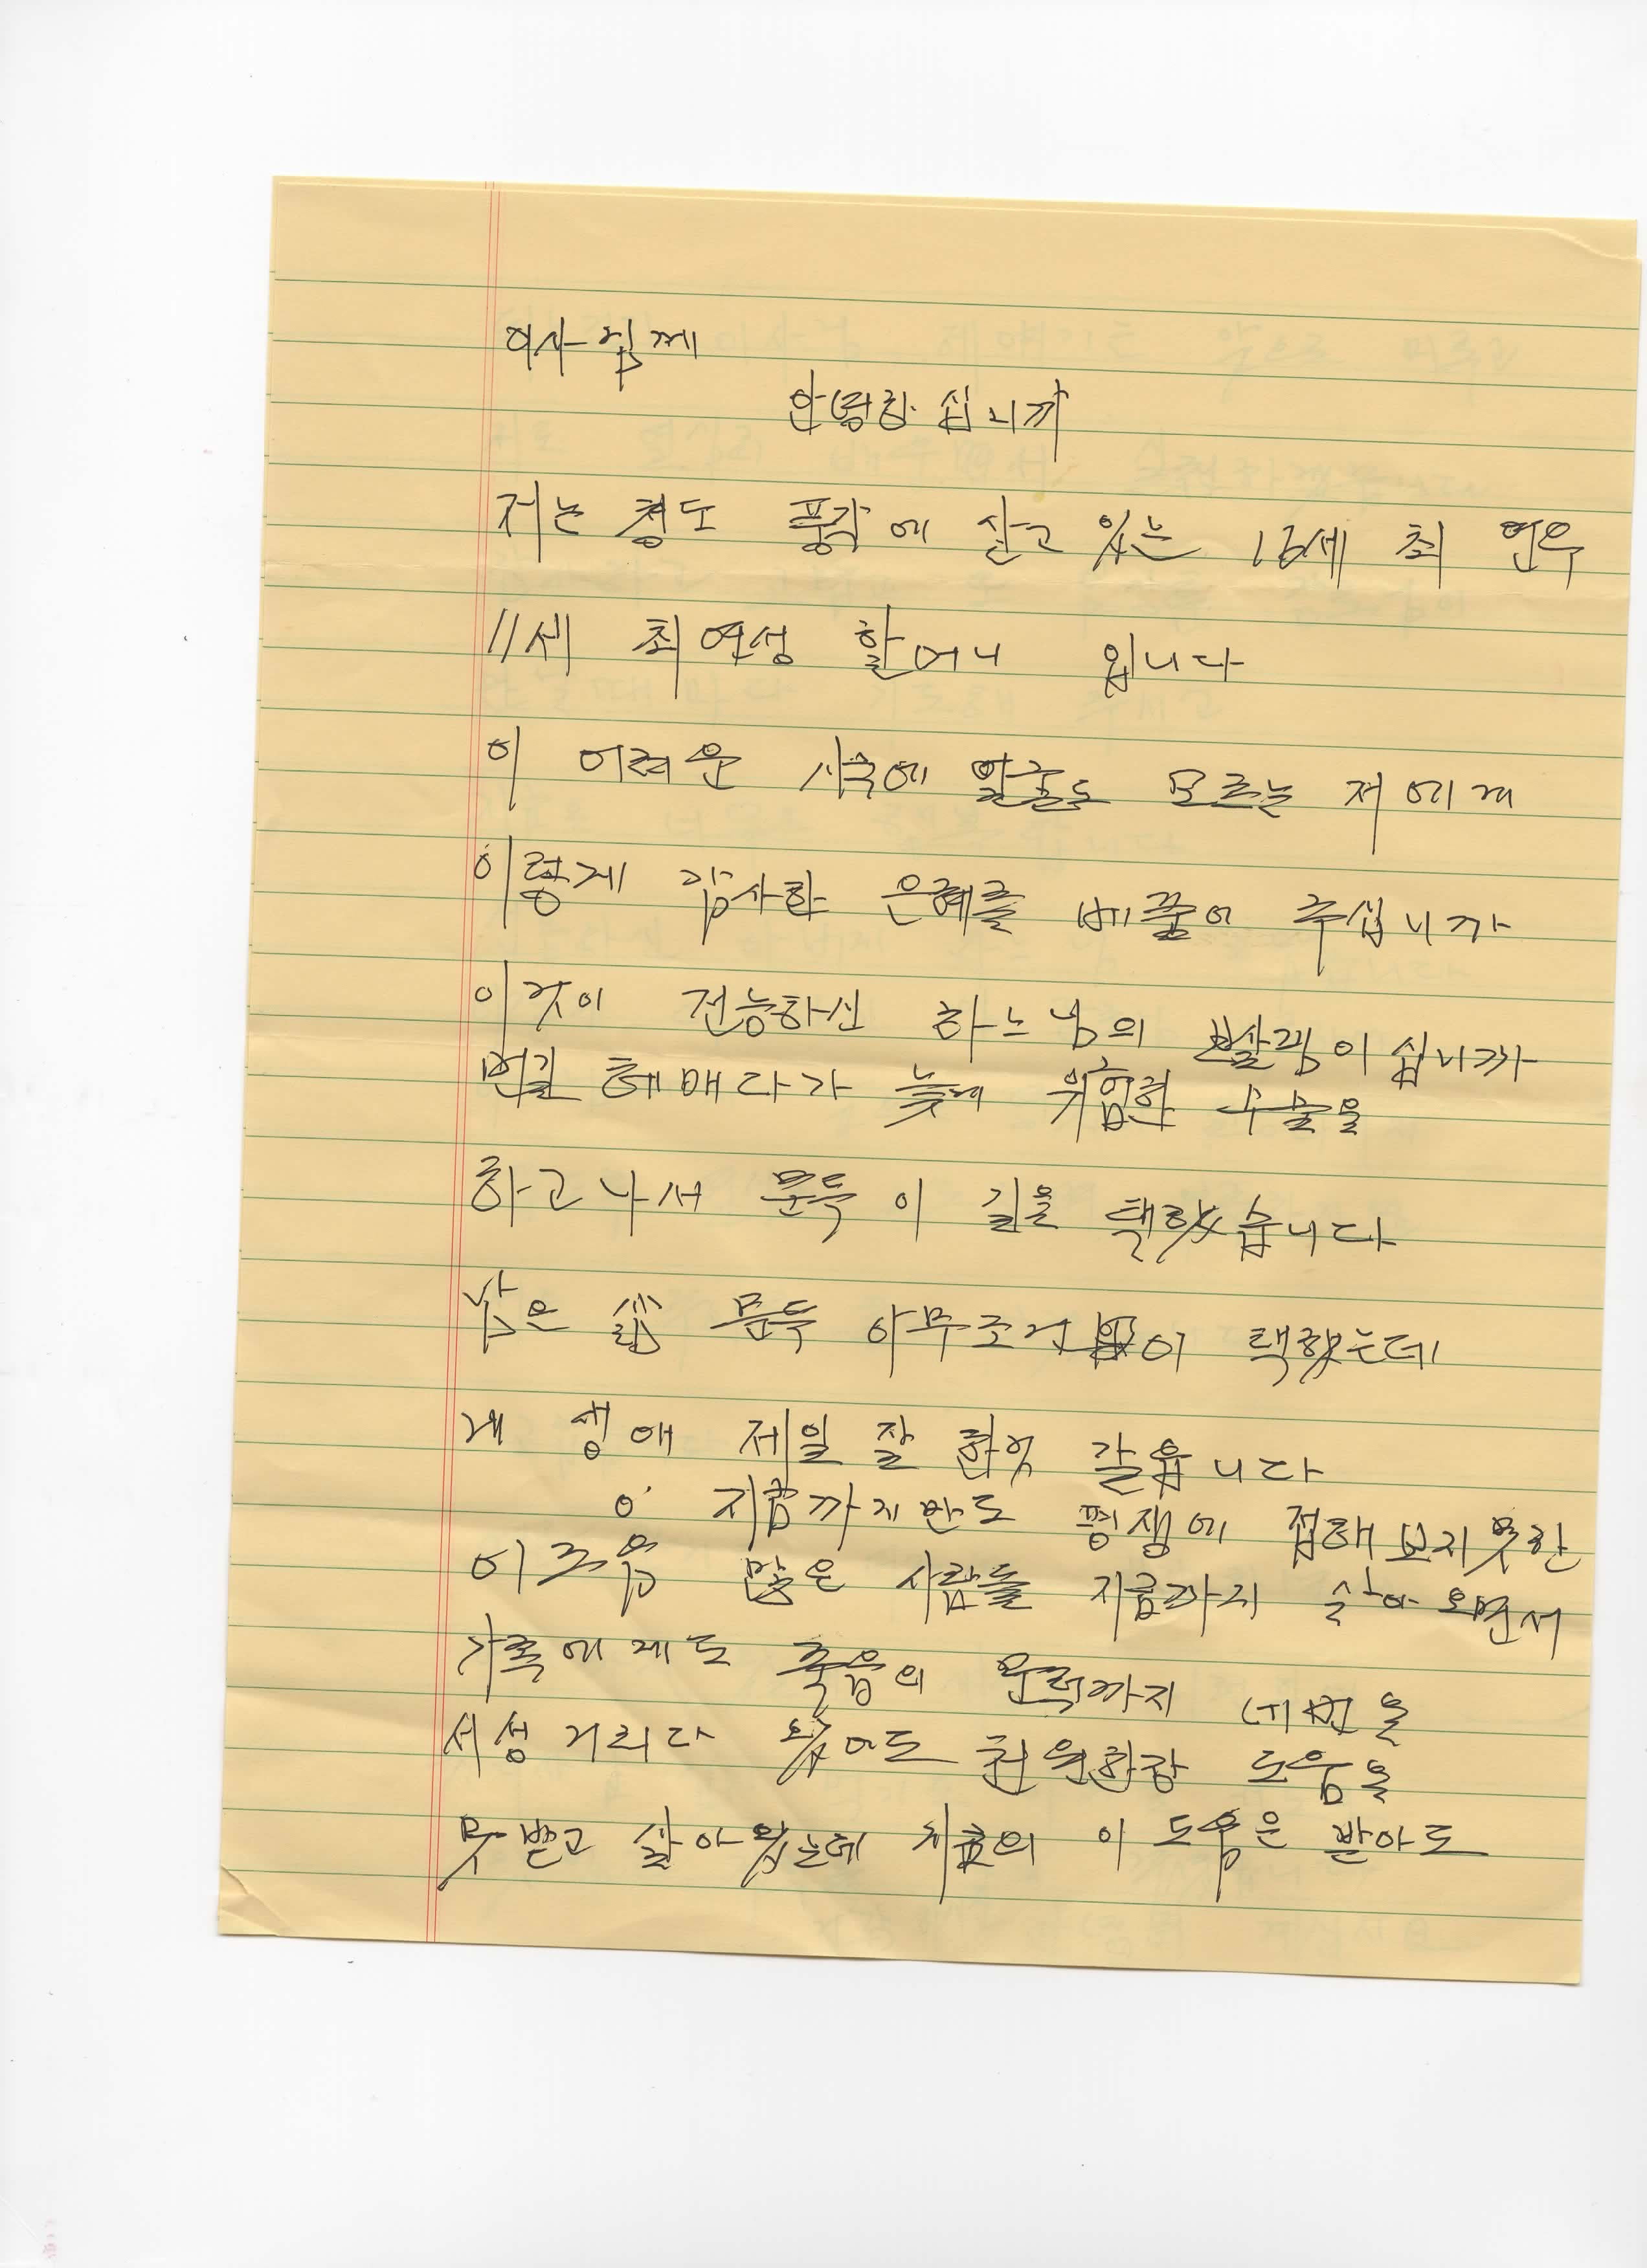 이사님께
안녕하십니까
저는 청도 풍각에 살고 있는 16세 최 연우
11세 최연성 할머니 입니다
이 어려운 시국에 얼굴도 모르는 저에게
이렇게 감사한 은혜를 베풀어 주십니까
이것이 전능하신 하느님의 보살핌이십니까
먼길 헤매다가 늦게 위험한 수술을
하고나서 문득 이 길을 택했습니다
남은 삶 문득 아무조건없이 택했는데
내 생애 제일 잘 한것 같읍니다
지금까지만도 평생에 접해보지못한
이르음 많은 사람들 지금까지 살아오면서
가족에게도 죽음의 문턱까지 네번을
서성거리다 왔어도 천원한장 도움을
못받고 살아왔는데 이 도움은 받아도